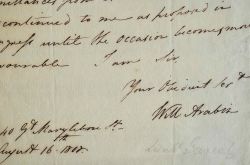 continued to me as proposed in
until the occasion becomes more
favourable I am Sir
Your Obedient Serv
Wm Arabin
40 Gt Marylebone St
August 16th